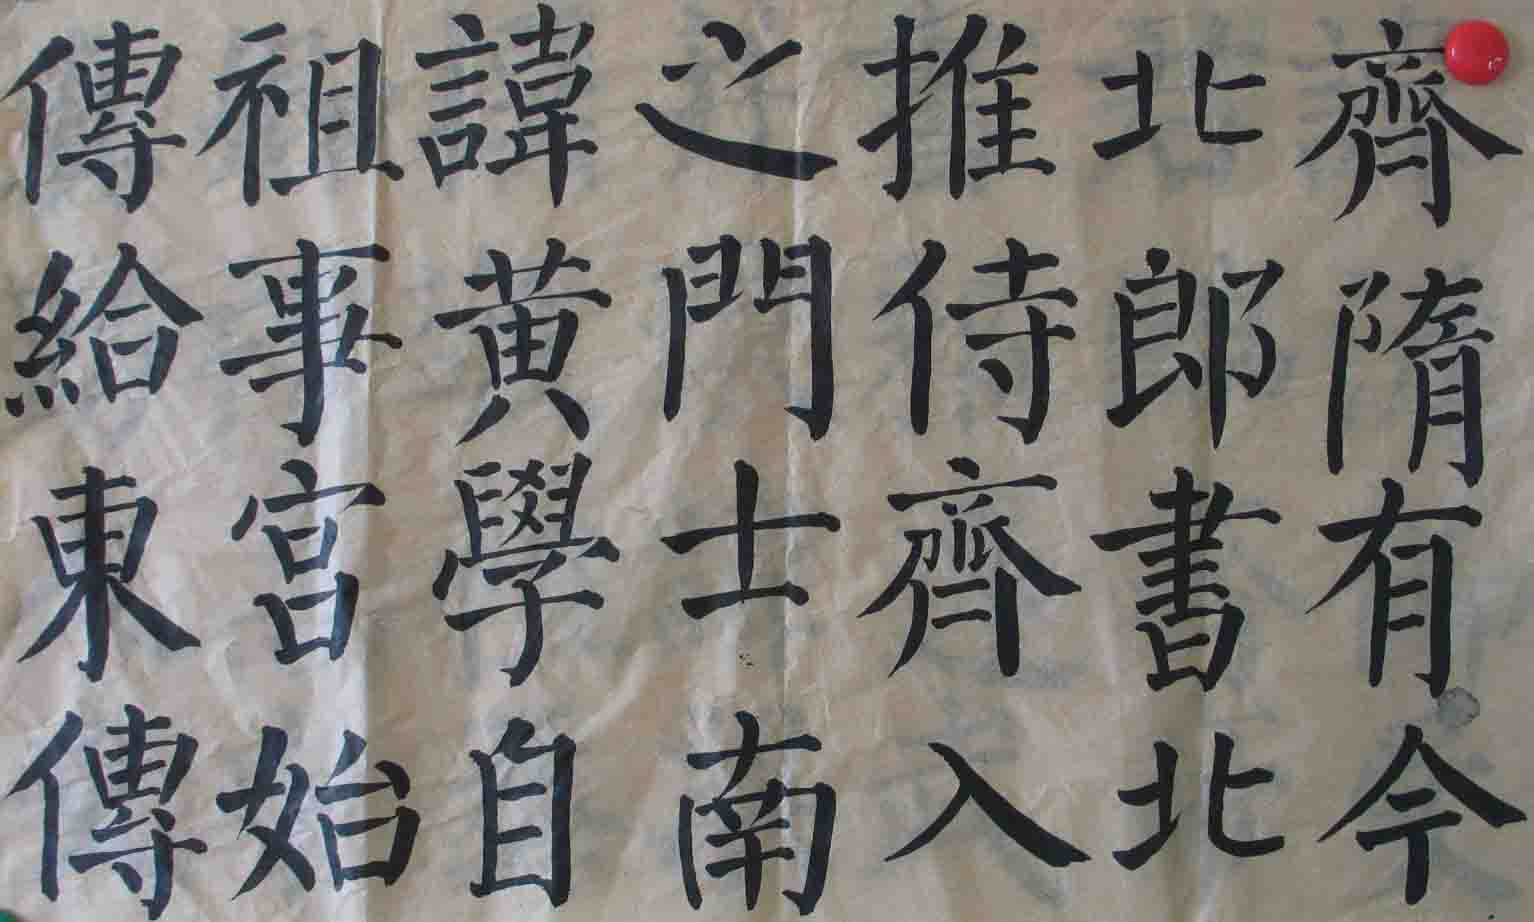 傳祖諱之推北齊
給事黄門侍郎隋
東宮學士齊書有
傳始自南入北今